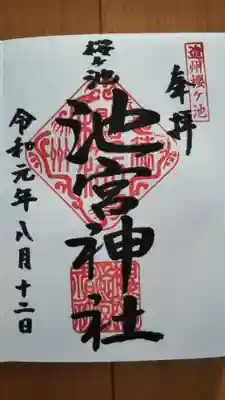 遠州櫻ヶ池
奉拝
桜ヶ池
池宮神社
令和元年八月十二日